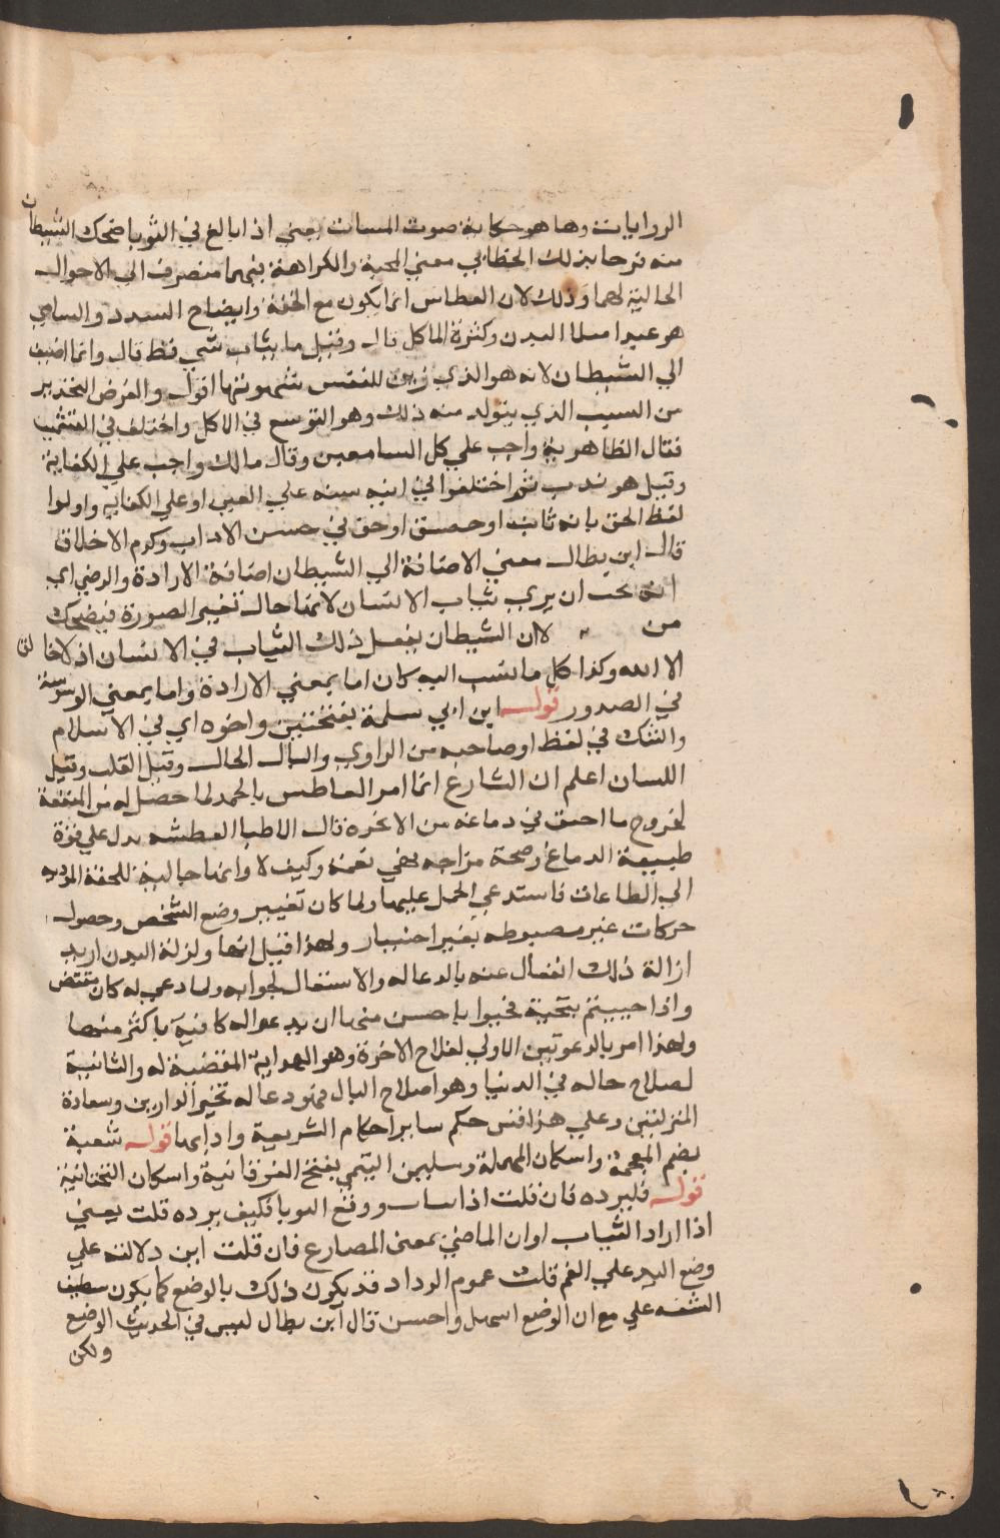 الروايات وها هو حكاية صوت المسات يعني اذا بالغ في الثوبا ضحك الشيطان
منه فرحا بذلك الخطابي معني المحبة والكراهة بينهما منصرف الي الاحوال
الحالية لهما وذلك لان العطاس انما يكون مع الخفة وايضاح السدد والساهي
هو عبد امتلا البدن وكثرة الماكل قال وقيل ما يثاب شي قط قال وانما اضيف
الي الشيطان لانه هو الذي زين للنفس شهوتها اقول والغرض التحذير
من السبب الذي يتولد منه ذلك وهو التوسع في الاكل واختلف في التشميت
فقال الظاهرية واجب علي كل السامعين وقال مالك واجب علي الكفاية
وقيل هو ندب ثم اختلفوا في انه سنه علي العين او علي الكفاية واولوا
لفظ الحق بانه ثابت او حق في حسن الاداب وكرم الاخلاق
قال ابن بطال معني الاضافة الي الشيطان اضافة الارادة والرضي اي
انه يحب ان يري ثياب الانسان لانها حال تغير الصورة فيضحك
من لان الشيطان يفعل ذلك الثياب في الانسان اذ لا خالق
الا الله وكذا كل ما نسب اليه كان اما بمعني الارادة واما بمعني الوسوسة
في الصدور قوله ابن ابي سلمة بفتحتين واخوه اي في الاسلام
والشك في لفظ او صاحبه من الراوي والبال الحال وقيل القلب وقيل
اللسان اعلم ان الشارع انما امر العاطس بالحمد لما حصل له من المنفعة
لخروج ما احتق في دماغه من الابخره قال الاطبا العطسه يدل علي قوة
طبيعة الدماغ وصحة مزاجه فهي نعمة وكيف لا وانها جالبة للخفة المودية
الي الطاعات فاستدعي الحمد عليها ولما كان تغيير وضع الشخص وحصول
حركات غير مضبوطه بغير اختيار ولهذا قيل انها ولزلة البدن اريد
ازالة ذلك انفعال عنه بالدعا له والاستغال لجوابه ولما دعي له كان مقتضي
واذا حييتم بتحية فحيوا باحسن منها ان يدعوا له كافية باكثر منها
ولهذا امر بالدعوتين الاولي لفلاح الاخرة وهو الهداية المقضية له والثانية
لصلاح حاله في الدنيا وهو اصلاح البال فهو دعا له بخير الدارين وسعادة
المنزلتين وعلي هذا فقس حكم ساير احكام الشريعة وادابها قوله شعبة
بضم المعجمة واسكان المهملة وسليمن التيمي بفتح الفوقانية واسكان التحتانية
قوله فليرده فان قلت اذا ووقع فكيف يرده قلت يعني
اذا اراد الثياب او ان الماضي بمعني المضارع فان قلت اين دلالته علي
وضع اليد علي الفم قلت عموم الرد اد قد يكون ذلك بالوضع كما يكون
الشفه علي مع ان الوضع اسهل واحسن قال ابن بطال ليس في الحديث الوضع
ولكن